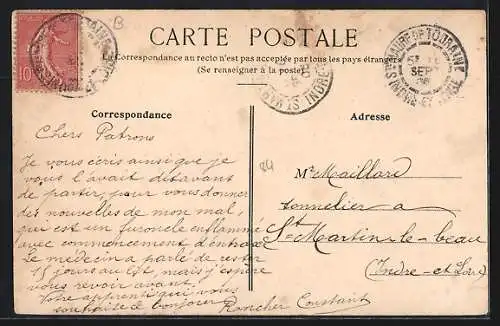 CARTE POSTALE
La Correspondance au recto n'est pas acceptée par tous les pays étrangers
(Se renseigner à la poste)
Correspondance
Chers Patrons
Je vous écris ainsi que je
vous l'avait dit avant
de partir, pour vous donner
des nouvelles de mon mal,
qui est un furoncle enflammé
avec commencement d'entrax
Le médecin a parlé de rester
15 jours au lit, mais j'espère
vous revoir avant.
Votre apprenti qui vous
souhaite le bonjour Rancher Constant
Adresse
84
Mr Maillard
tonnelier a
St Martin-le-beau
(Indre-et-Loire)
10
STE MAURE DE TOURAINE
SEPT
INDRE-ET-LOIRE
INDRE
B